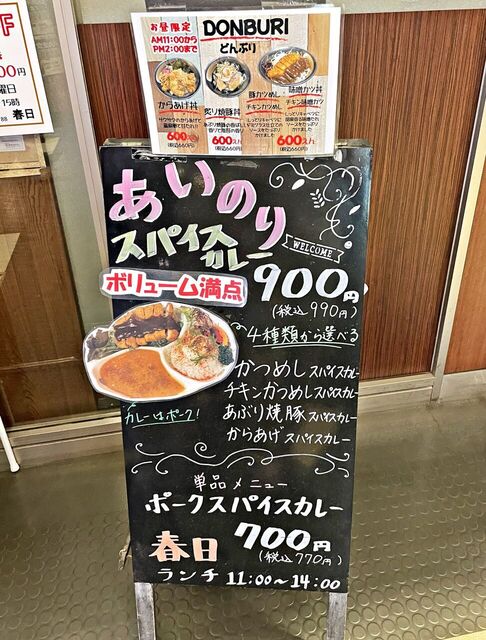 お昼限定
AM11:00から
PM2:00まで
DONBURI
どんぶり
からあげ丼
600えん
(税込660円)
炙り焼豚丼
600えん
(税込660円)
豚カツめし
チキンカツめし
600えん
(税込660円)
味噌カツ丼
チキン味噌カツ丼
600えん
(税込660円)
00円
曜日
15時
春日
あいのり
スパイス
カレー
WELCOME
ボリューム満点
900円
(税込990円)
4種類から選べる
かつめしスパイスカレー
チキンかつめしスパイスカレー
あぶり焼豚スパイスカレー
からあげスパイスカレー
カレーはポーク!
単品メニュー
ポークスパイスカレー
春日
700円
(税込770円)
ランチ 11:00~14:00